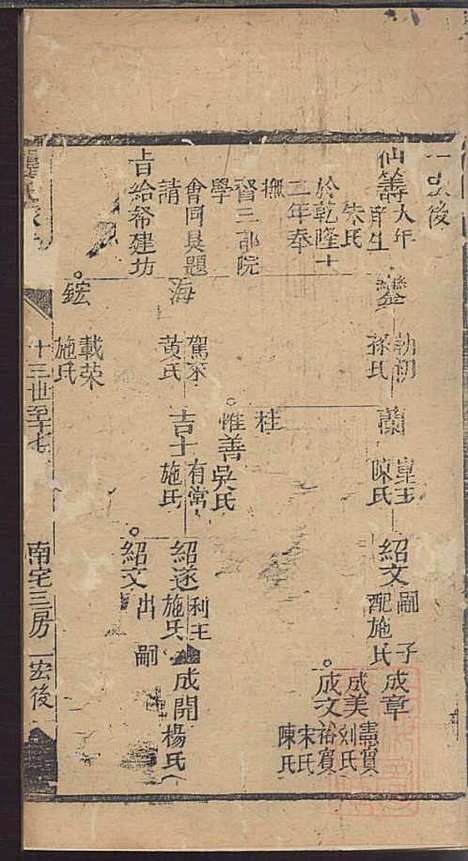 一宏後
仙籌 大年
庠生
朱氏
於乾隆十
三年奉
撫
督三部院
學
會同具題
請
旨給帑建坊
鑾 勅初
孫氏
海 駕來
黃氏
鋐 載荣
施氏
蘭 皇玉
陳氏
桂
惟善 吳氏
吉士 有常
施氏
紹文 嗣子
配施氏
紹遂 利王
施氏
紹文 出嗣
成章
成美 憲寶
刘氏
成文 裕寶
宋氏
陳氏
成開 楊氏
十三世至十七
南宅三房 一宏後